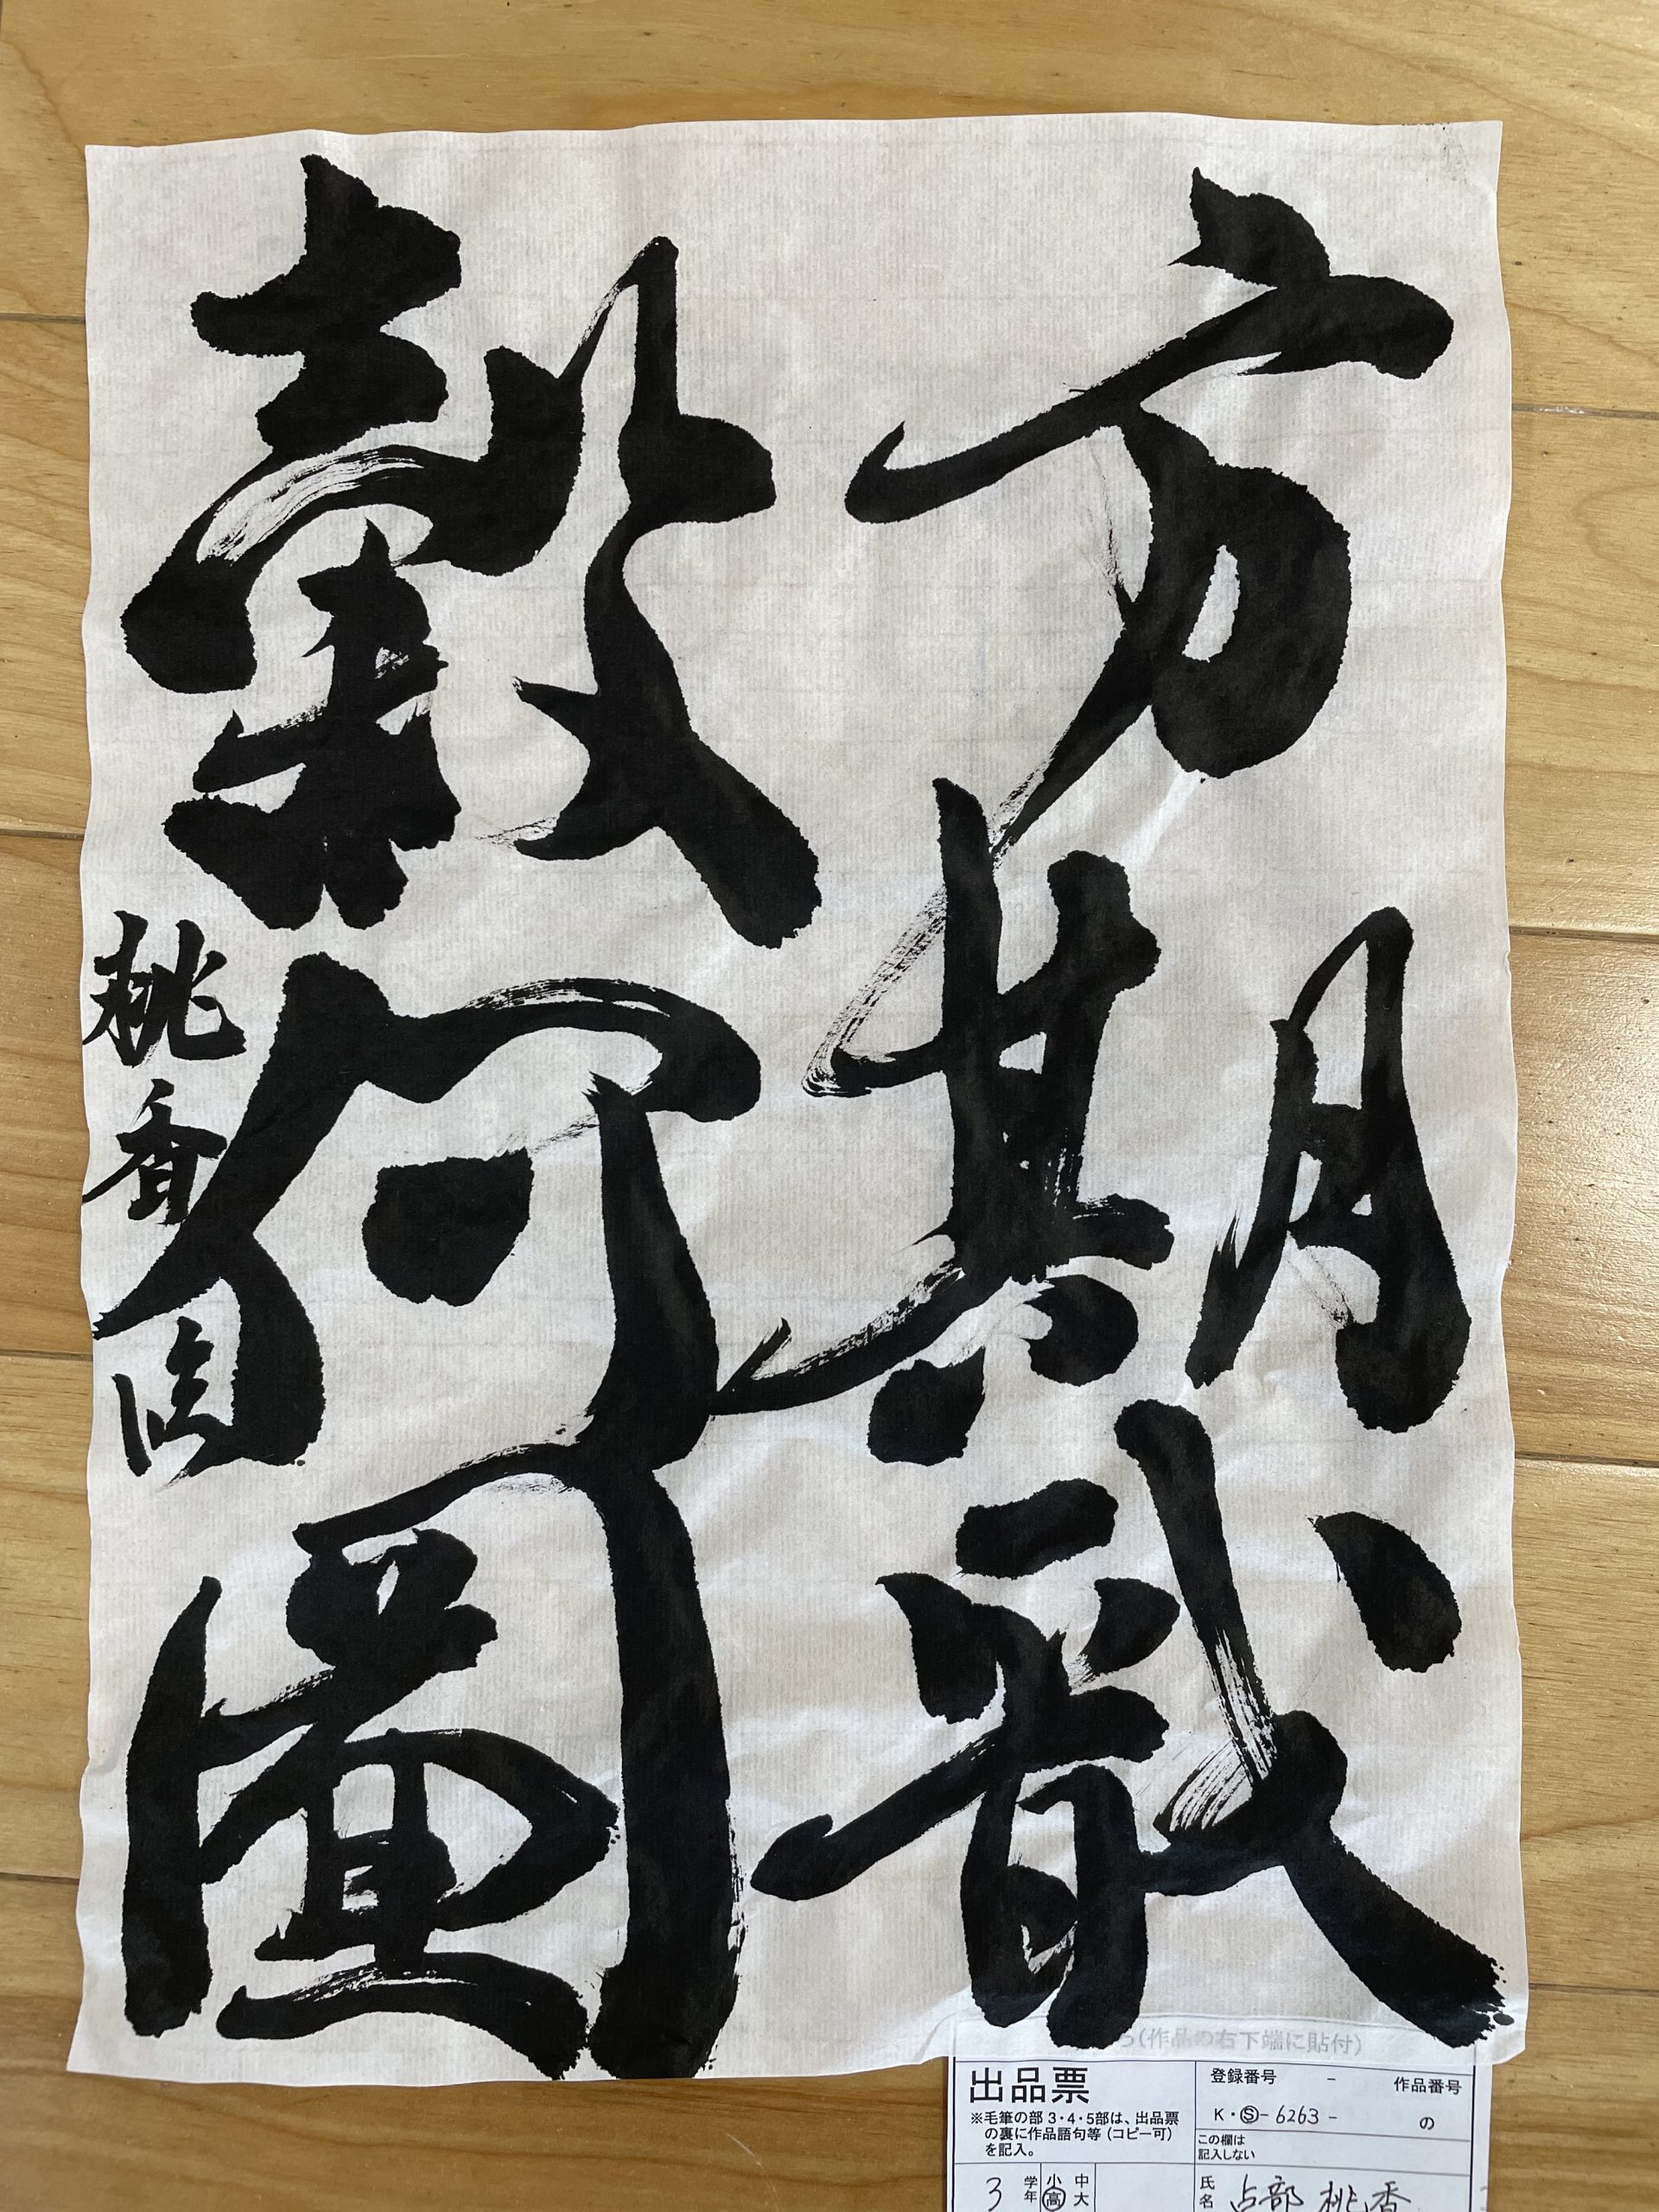 方期戩
穀何圖
桃香臨
(作品の右下端に貼付)
出品票
※毛筆の部 3・4・5部は、出品票
の裏に作品語句等(コピー可)
を記入。
登録番号 - 作品番号
K・Ⓢ-6263- の
この欄は
記入しない
3 学年 小 中 高 大
氏名 占部 桃香